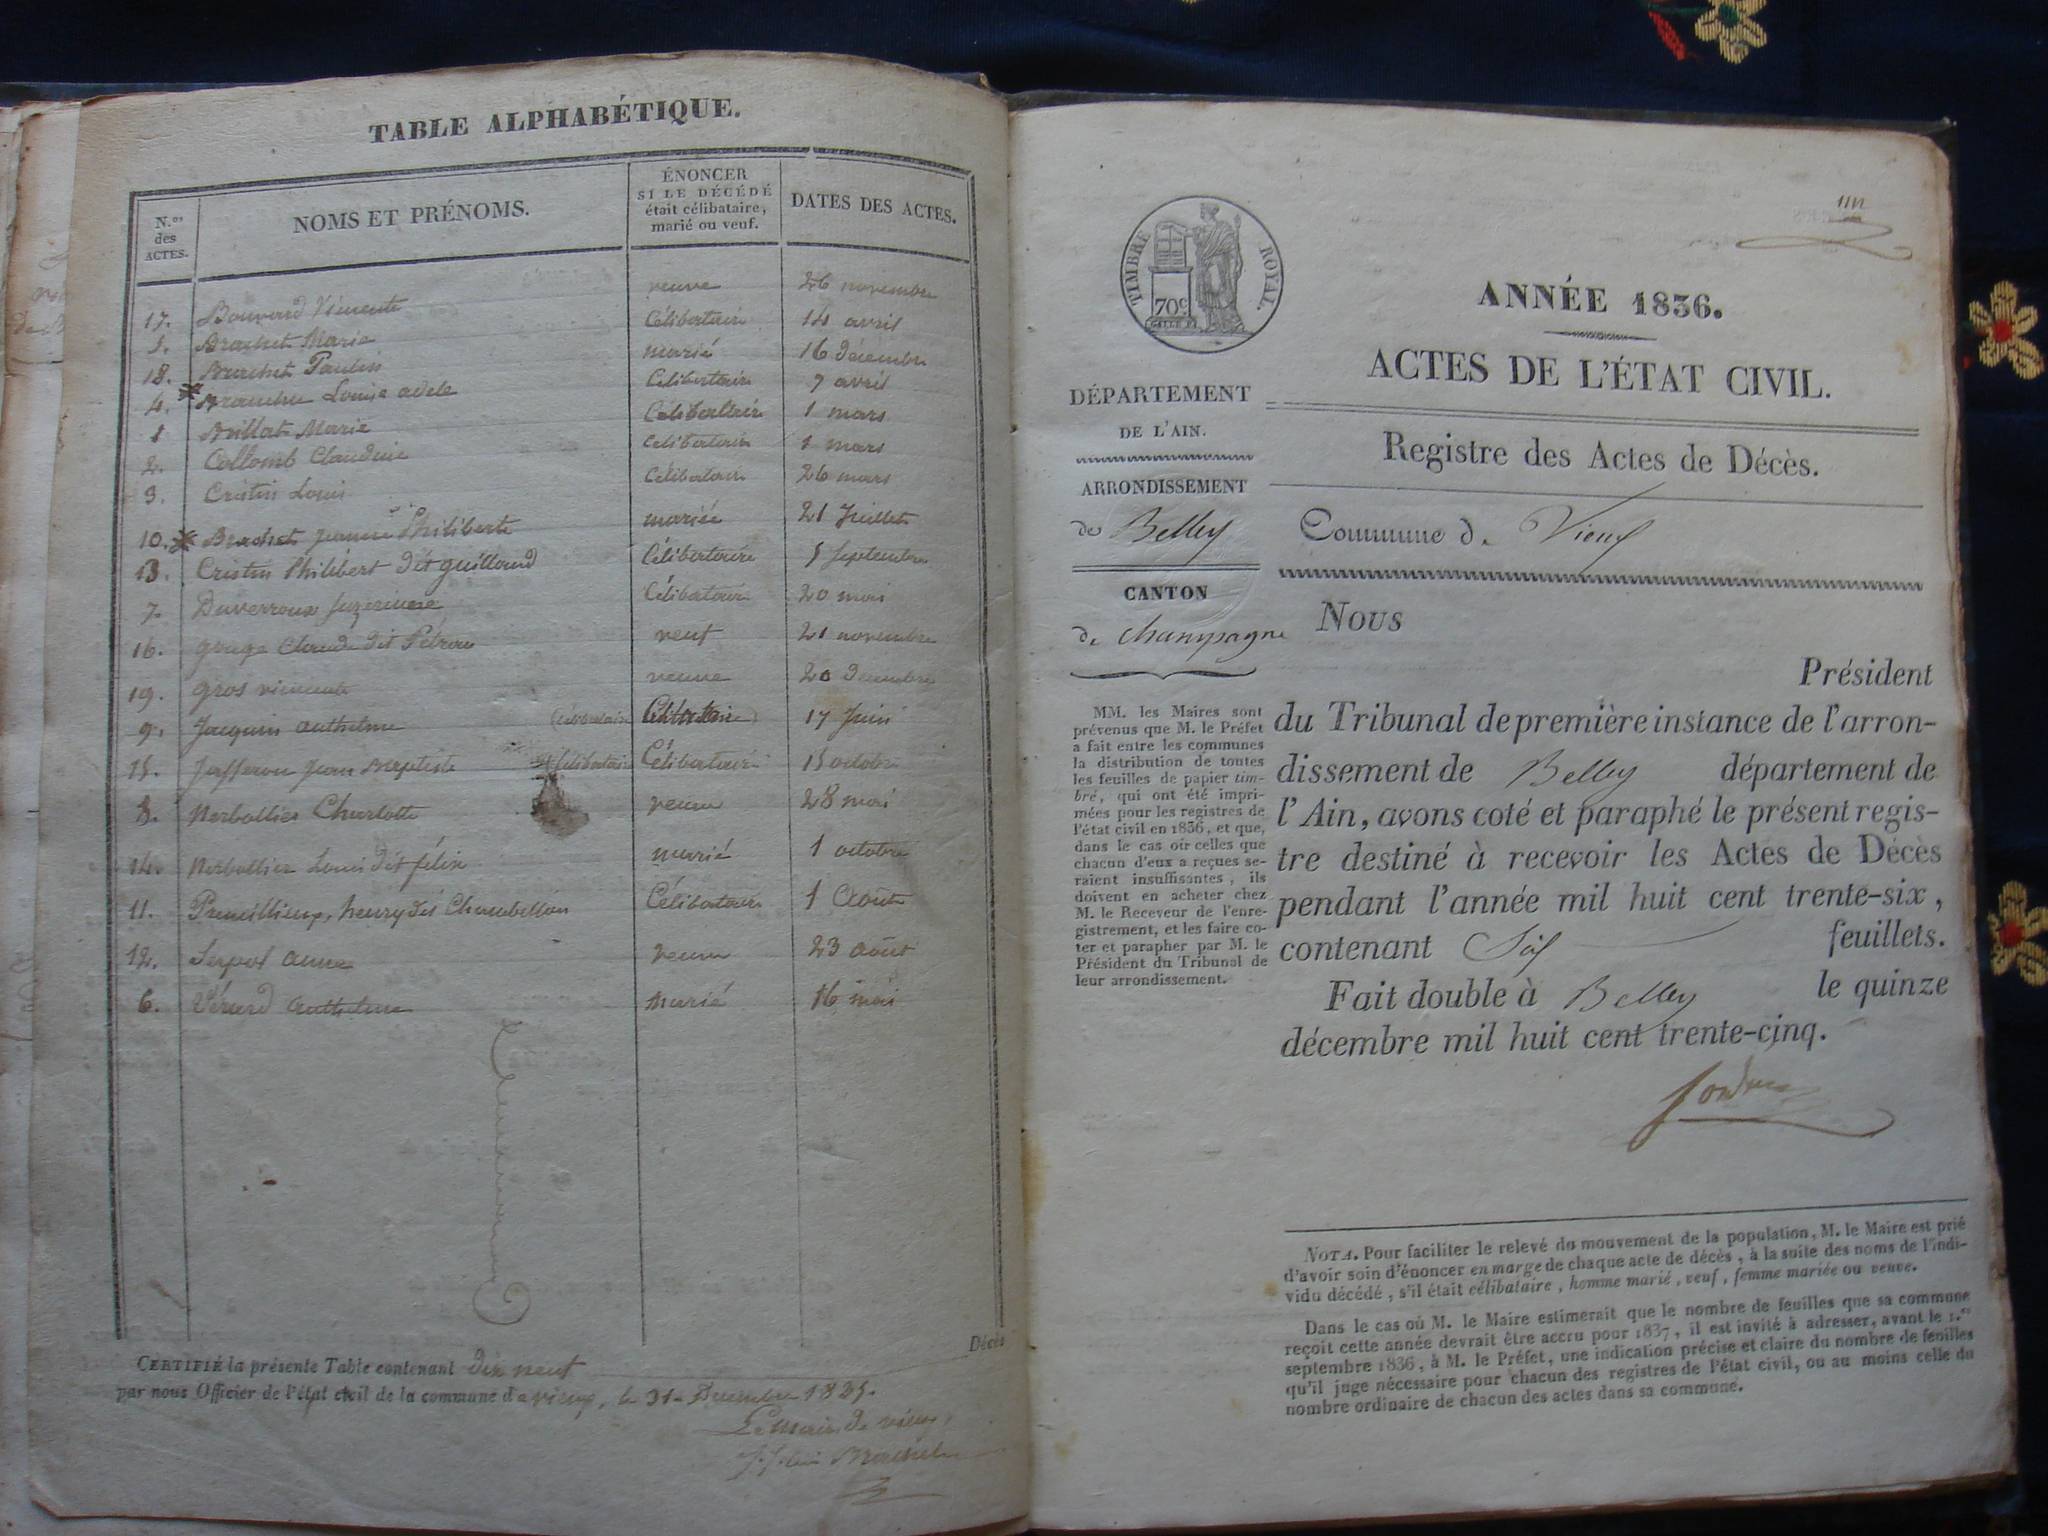 TABLE ALPHABÉTIQUE.
N.os des ACTES.
NOMS ET PRÉNOMS.
ÉNONCER
SI LE DÉCÉDÉ
était célibataire,
marié ou veuf.
DATES DES ACTES.
17. Bouvard Vincente veuve 26 novembre
5. Brachet Marie Célibataire 14 avril
18. Brachet Paulin marié 16 décembre
4. Louise adele Célibataire 7 avril
1 Billat Marie Célibataire 1 mars
2. Collomb Claudine Célibataire 1 mars
3. Cristin Louis Célibataire 26 mars
10. Brachet jeanne Philiberte mariée 21 Juillet
13. Cristin Philibert dit guilland Célibataire 5 Septembre
7. Duverroux Célibataire 20 mai
16. Claude dit veuf 21 novembre
19. gros vincente veuve 20 Decembre
9. Jacquin anthelme (Célibataire Célibataire) 17 Juin
15. Jean Baptiste Célibataire Célibataire 15 octobre
8. Charlotte veuve 28 mai
14. Louis dit félix marié 1 octobre
11. henry dit Chambellan Célibataire 1 Août
12. Serpol anne veuve 23 août
6. anthelme Marié 16 mai
Décès
CERTIFIÉ la présente Table contenant dix neuf
par nous Officier de l'état civil de la commune de vieux, le 31 Decembre 1835.
Le maire de vieux,
Brachet
TIMBRE ROYAL.
70c
ANNÉE 1836.
ACTES DE L'ÉTAT CIVIL.
Registre des Actes de Décès.
Commune de Vieux
DÉPARTEMENT
DE L'AIN.
ARRONDISSEMENT
de Belley
CANTON
de Champagne
MM. les Maires sont
prévenus que M. le Préfet
a fait entre les communes
la distribution de toutes
les feuilles de papier tim-
bré, qui ont été impri-
mées pour les registres de
l'état civil en 1836, et que,
dans le cas où celles que
chacun d'eux a reçues se-
raient insuffisantes, ils
doivent en acheter chez
M. le Receveur de l'enre-
gistrement, et les faire co-
ter et parapher par M. le
Président du Tribunal de
leur arrondissement.
Nous
Président
du Tribunal de première instance de l'arron-
dissement de Belley département de
l'Ain, avons coté et paraphé le présent regis-
tre destiné à recevoir les Actes de Décès
pendant l'année mil huit cent trente-six,
contenant Six feuillets.
Fait double à Belley le quinze
décembre mil huit cent trente-cinq.
NOTA. Pour faciliter le relevé du mouvement de la population, M. le Maire est prié
d'avoir soin d'énoncer en marge de chaque acte de décès, à la suite des noms de l'indi-
vidu décédé, s'il était célibataire, homme marié, veuf, femme mariée ou veuve.
Dans le cas où M. le Maire estimerait que le nombre de feuilles que sa commune
reçoit cette année devrait être accru pour 1837, il est invité à adresser, avant le 1.er
septembre 1836, à M. le Préfet, une indication précise et claire du nombre de feuilles
qu'il juge nécessaire pour chacun des registres de l'état civil, ou au moins celle du
nombre ordinaire de chacun des actes dans sa commune.